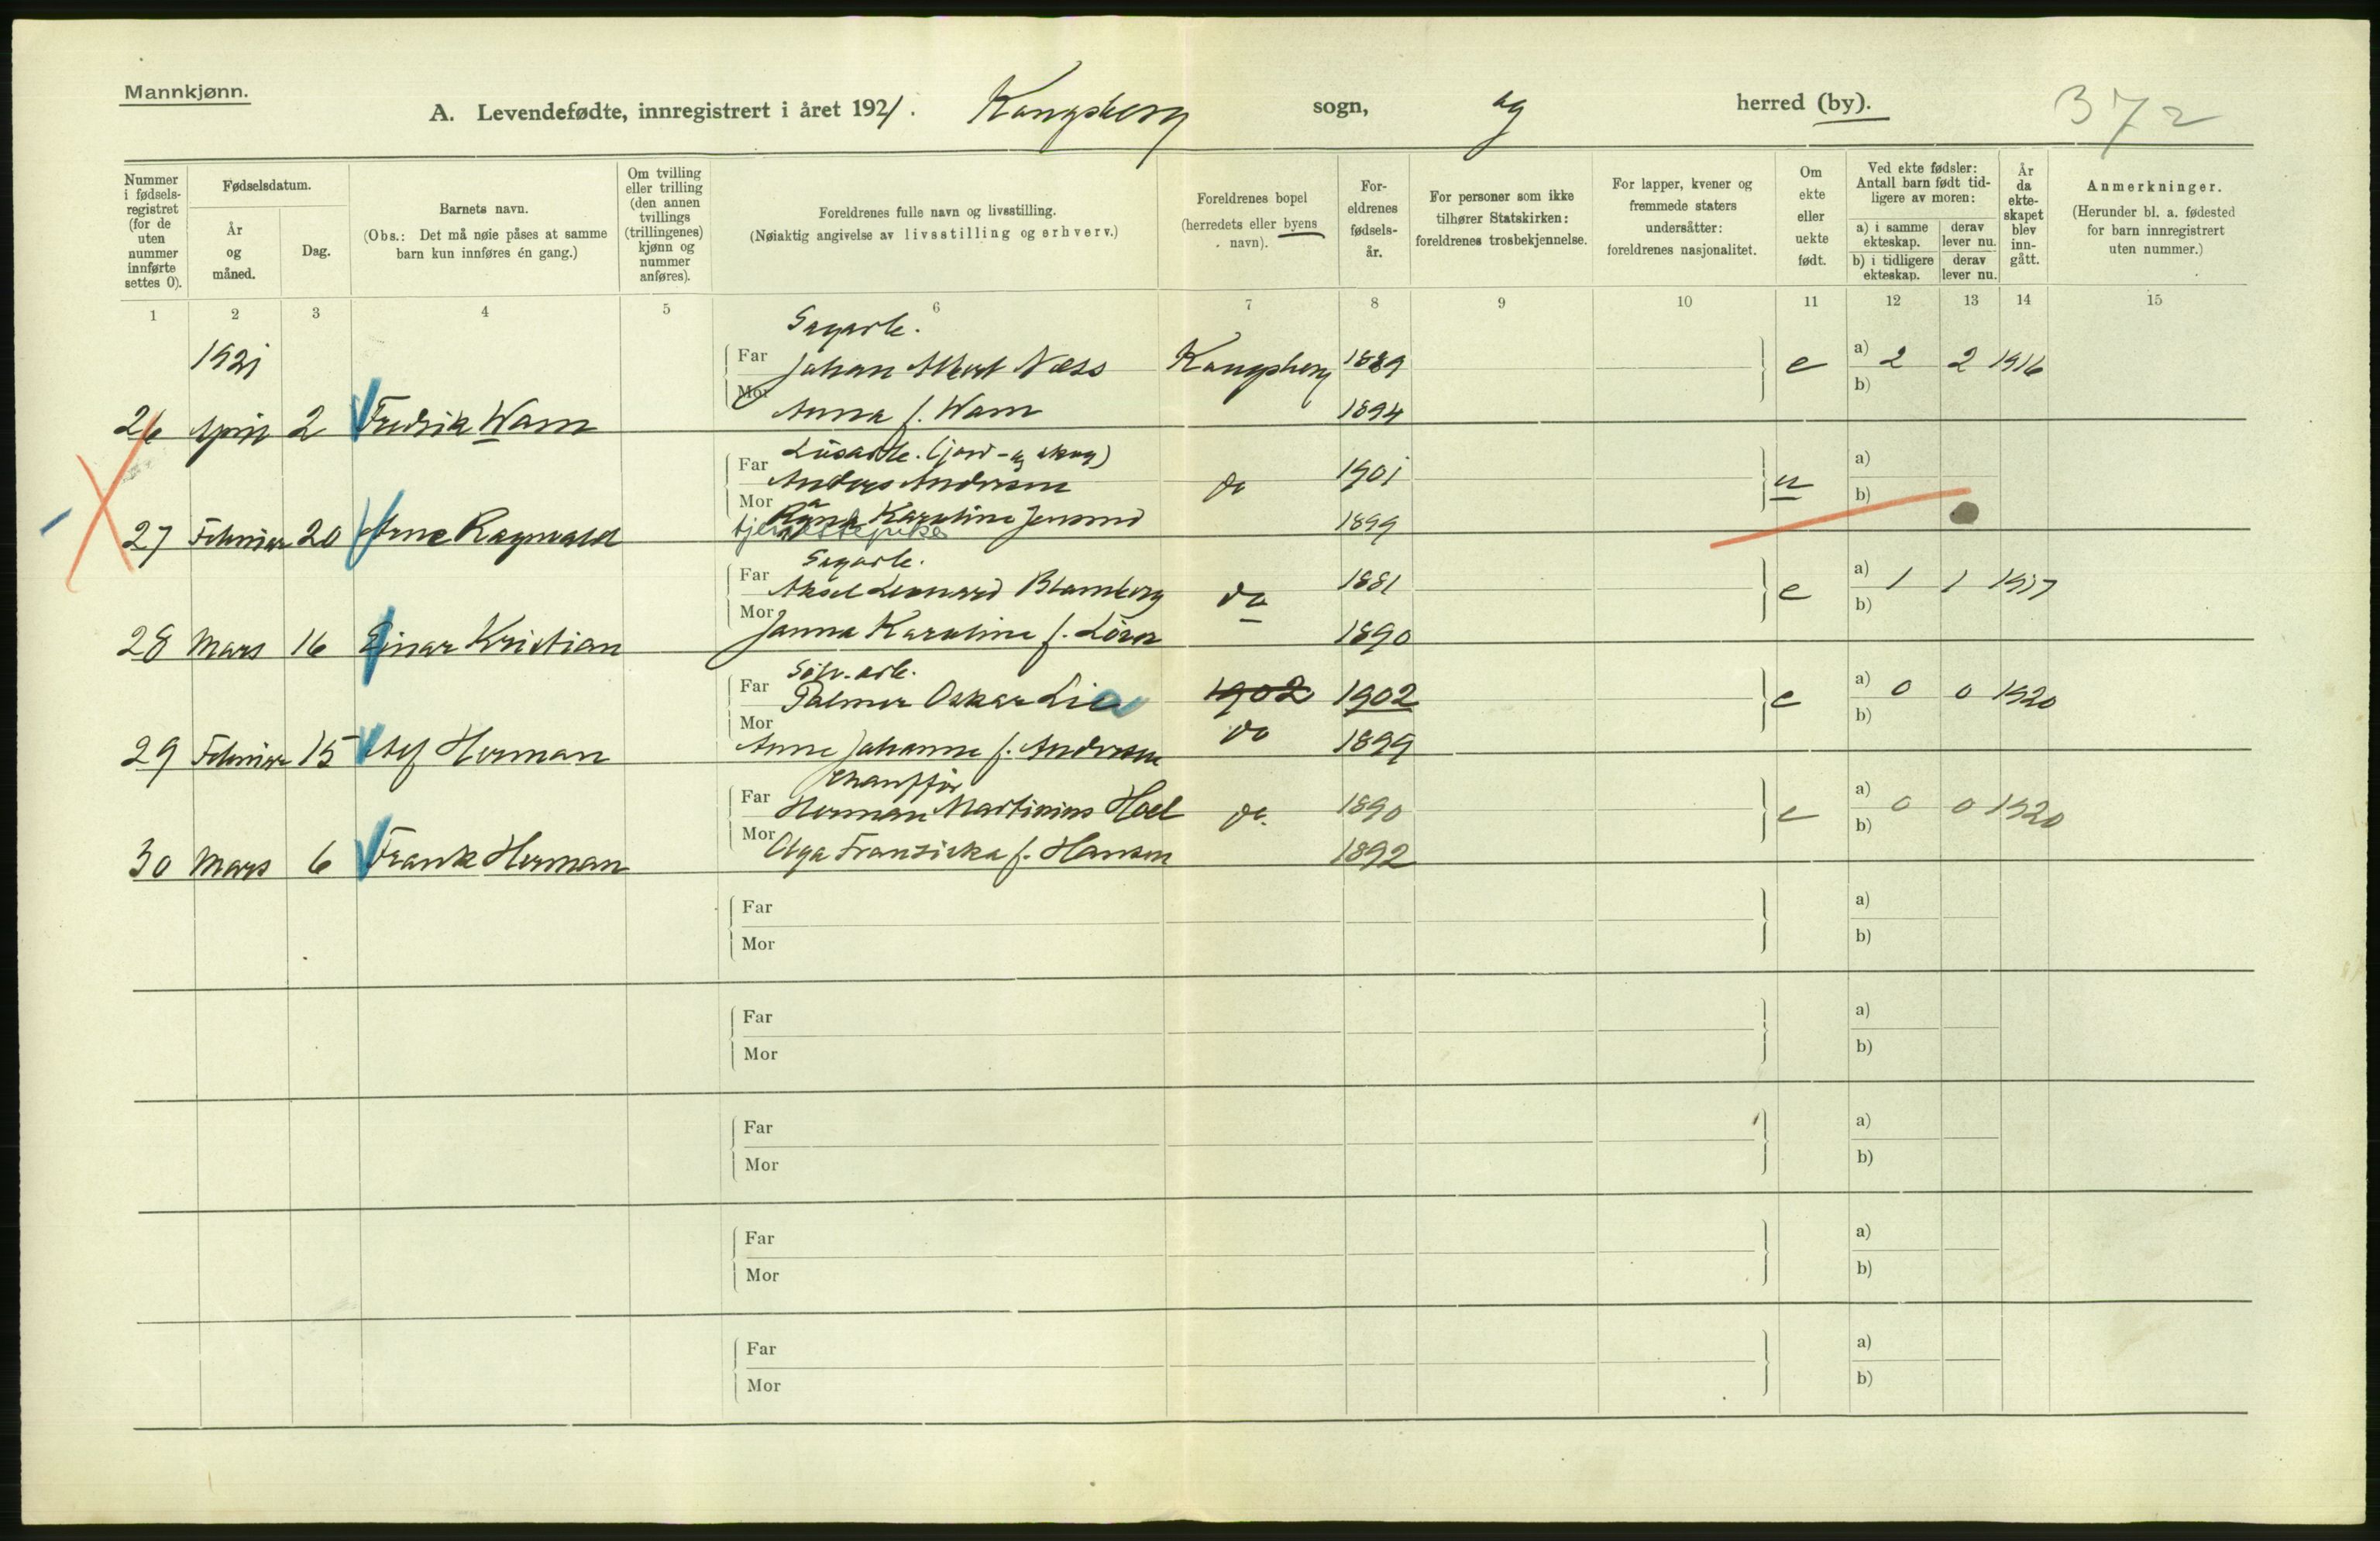 Mannkjønn.
A. Levendefødte, innregistrert i året 1921. Kongsberg sogn, og herred (by). 372
Nummer i fødsels-registret (for de uten nummer innførte settes 0).
Fødselsdatum.
År og måned.
Dag.
Barnets navn.
(Obs.: Det må nøie påses at samme barn kun innføres én gang.)
Om tvilling eller trilling (den annen tvillings (trillingenes) kjønn og nummer anføres).
Foreldrenes fulle navn og livsstilling.
(Nøiaktig angivelse av livsstilling og erhverv.)
Foreldrenes bopel (herredets eller byens navn).
For-eldrenes fødsels-år.
For personer som ikke tilhører Statskirken: foreldrenes trosbekjennelse.
For lapper, kvener og fremmede staters undersåtter: foreldrenes nasjonalitet.
Om ekte eller uekte født.
Ved ekte fødsler: Antall barn født tid-ligere av moren:
a) i samme ekteskap.
derav lever nu.
b) i tidligere ekteskap.
derav lever nu.
År da ekte-skapet blev inn-gått.
Anmerkninger.
(Herunder bl. a. fødested for barn innregistrert uten nummer.)
1 2 3 4 5 6 7 8 9 10 11 12 13 14 15
1921
Sagarb.
Far Johan Albert Næss Kongsberg 1889 e a) 2 2 1916
Mor Anna f. Wam 1894 b)
26 April 2 Fredrik Wam
Løsarb. (jord- og skog)
Far Anders Andersen do 1901 u a)
Mor Karoline Jensen 1899 b)
tjenestepike
27 Februar 20 Arne Ragnvald
Sagarb.
Far Aksel Leonard Blomberg do 1881 e a) 1 1 1917
Mor Janna Karoline f. 1890 b)
28 Mars 16 Einar Kristian
Sölv. arb.
Far Palmer Oskar Lie 1902 1902 e a) 0 0 1920
Mor Anne Johanne f. Andersen do 1899 b)
29 Februar 15 Herman
Chauffør
Far Herman Martinius Hoel do. 1890 e a) 0 0 1920
Mor Olga Franziska f. Hansen 1892 b)
30 Mars 6 Frank Herman
Far a)
Mor b)
Far a)
Mor b)
Far a)
Mor b)
Far a)
Mor b)
Far a)
Mor b)